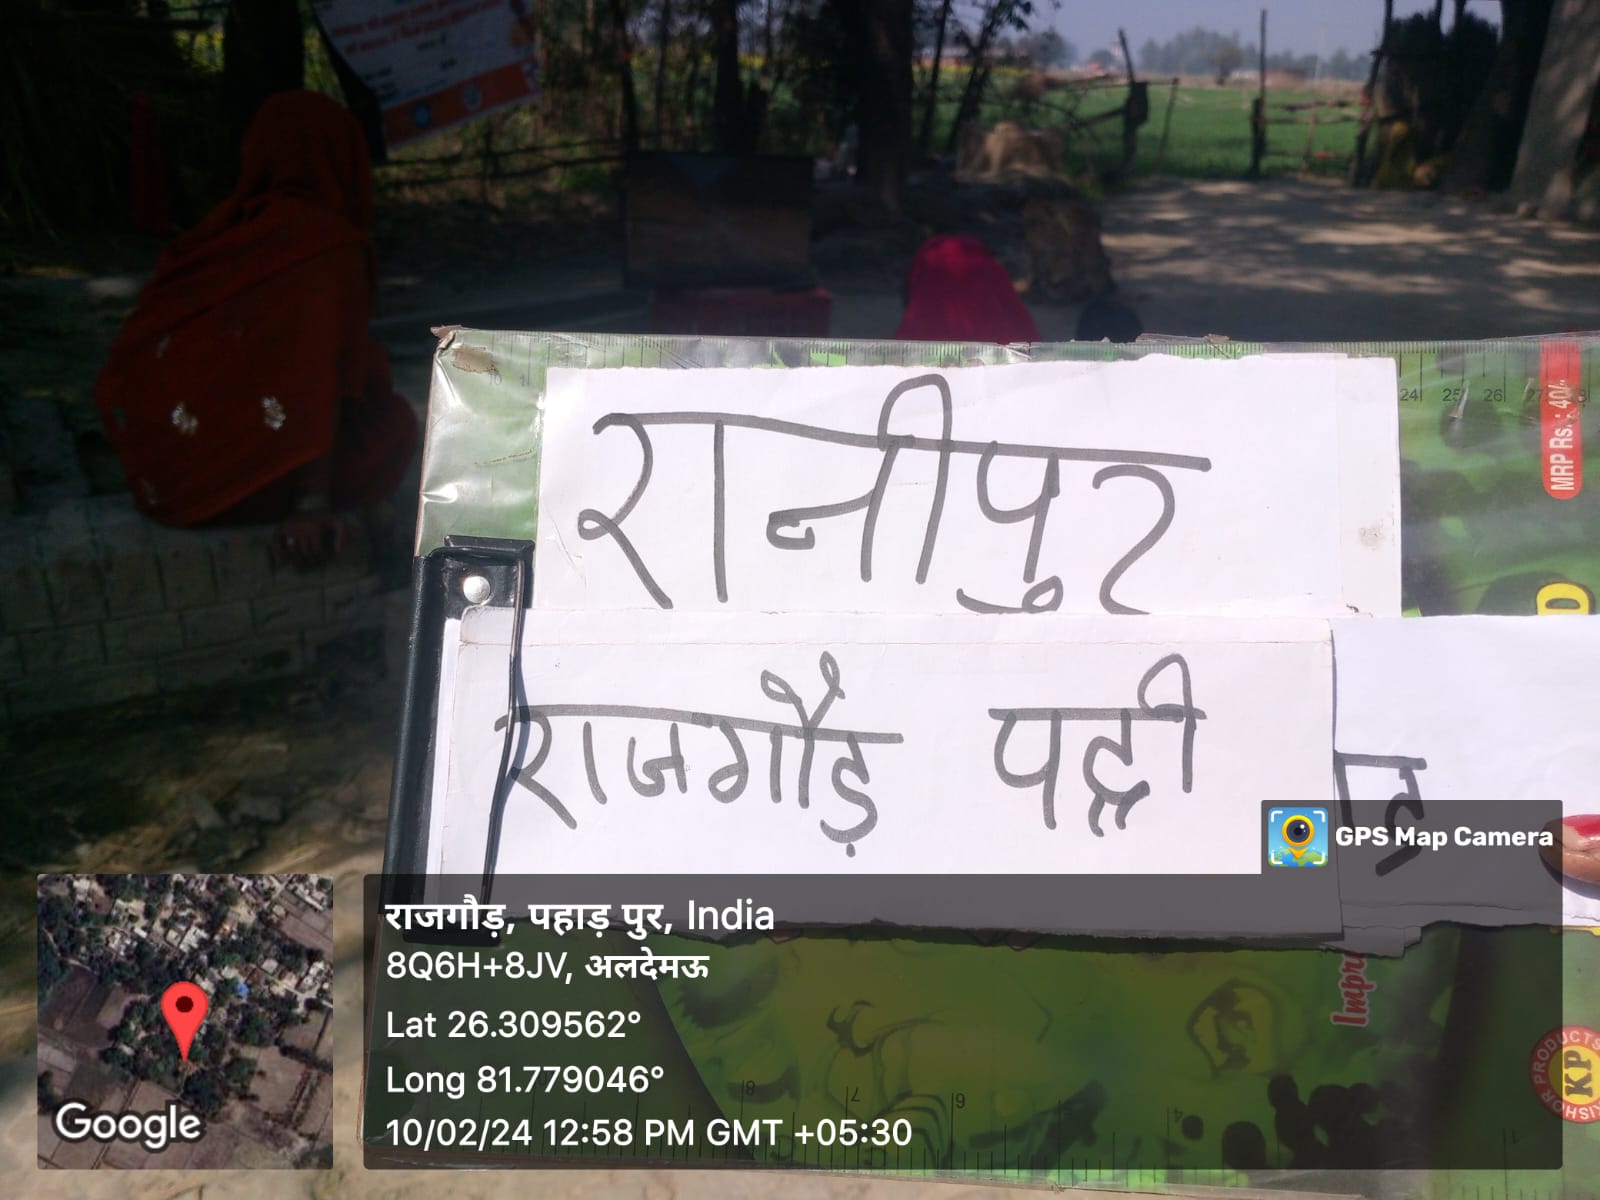 रानीपुर
राजगौड़ पट्टी
MRP Rs.: 40/-
24 25 26 27
GPS Map Camera
राजगौड़, पहाड़ पुर, India
8Q6H+8JV, अलदेमऊ
Lat 26.309562°
Long 81.779046°
10/02/24 12:58 PM GMT +05:30
Google
PRODUCTS
KP